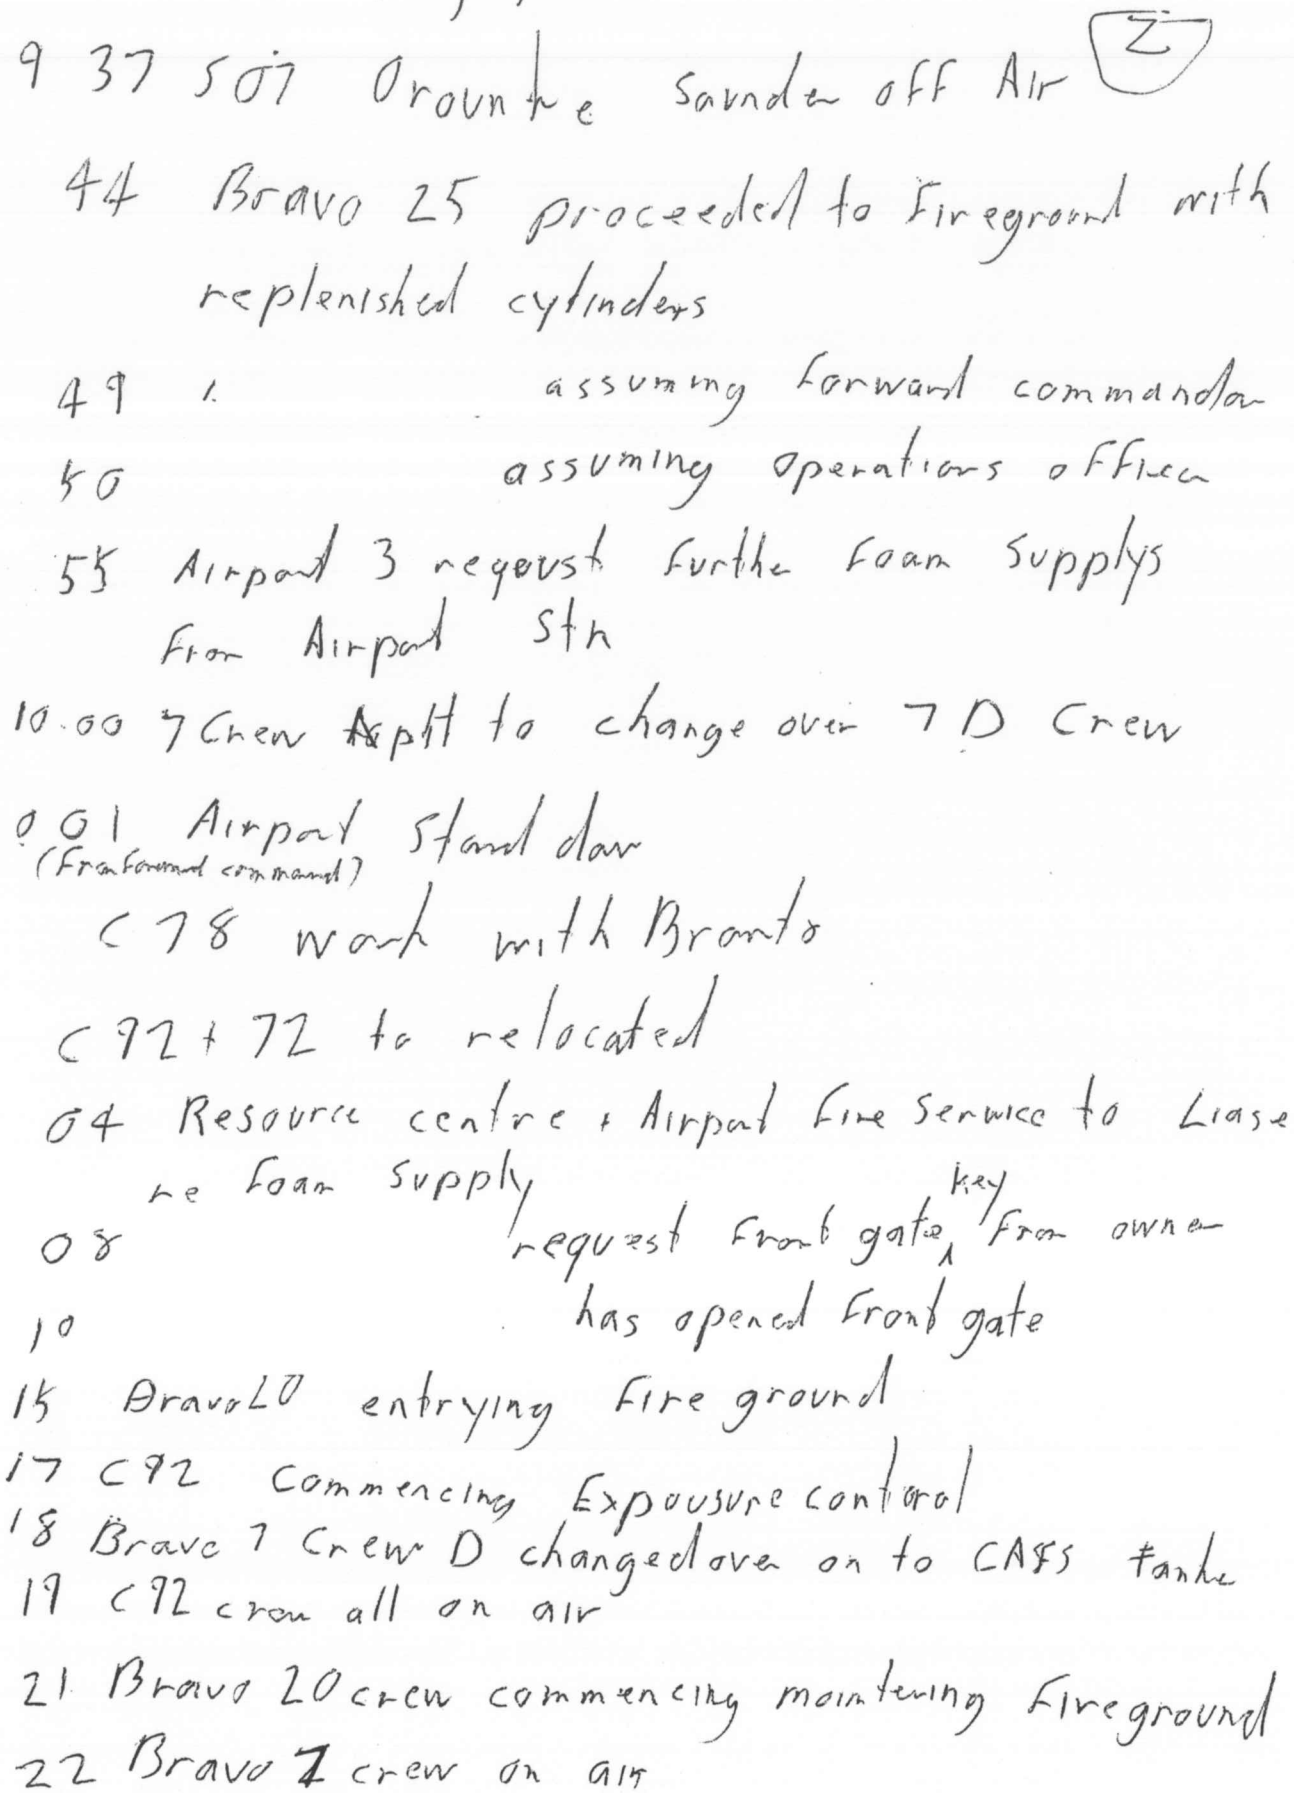 2
9 37 507 Orountre Saunder off Air
44 Bravo 25 proceeded to Fireground with
replenished cylinders
49 assuming Forward commander
50 assuming operations officer
55 Airport 3 reqeust further Foam Supplys
From Airport Stn
10.00 7 Crew to change over 7 D Crew
001 Airport Stand down
(From Forward command)
C78 work with Bronto
C92 + 72 to relocated
04 Resource centre + Airport Fire Service to Liase
re Foam Supply
key
08 request Front gate, From owner
10 has opened Front gate
15 Bravo 20 entrying Fire ground
17 C92 Commencing Expousure contorol
18 Bravo 7 Crew D changed over on to CAFS tanker
19 C92 crew all on air
21 Bravo 20 crew commencing mointering Fireground
22 Bravo 7 crew on air